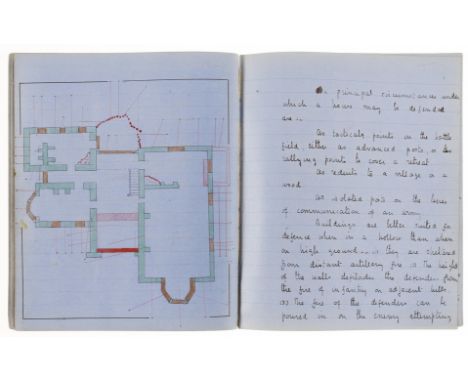 principal circumstances under
which a house may be defended
are :-
As tactical points in the battle
field, either as advanced posts, or as
rallying points to cover a retreat
As redents to a village or a
wood
As isolated posts on the lines
of communication of an army
Buildings are better suited for
defence when in a hollow than when
on high ground they are sheltered
from distant artillery fire The height
of the walls the defenders from
the fire of infantry on adjacent hills.
The fire of the defenders can be
poured in on the enemy attempting